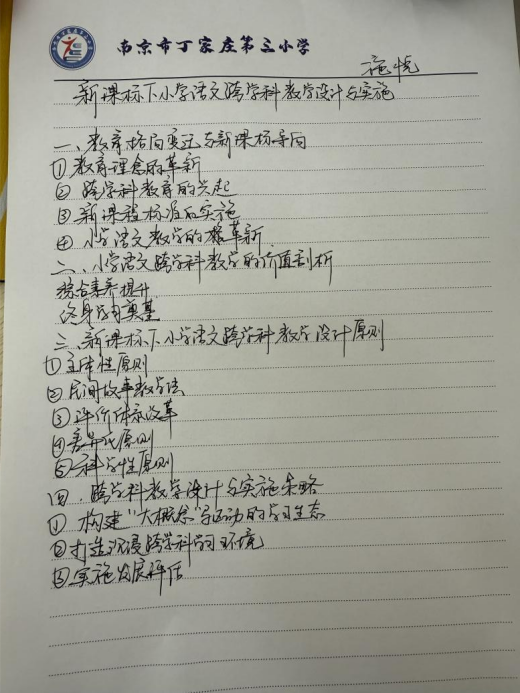 南京市丁家庄第三小学
施悦
新课标下小学语文跨学科教学设计与实施
一、教育格局变迁与新课标导向
①教育理念的革新
② 跨学科教育的兴起
③新课程标准后实施
④ 小学语文教学的革新
二、小学语文跨学科教学的价值剖析
综合素养提升
终身成有奠基
三、新课标下小学语文跨学科教学设计原则
①主体性原则
②民间故事教学法
③评价体系改革
④差异化原则
⑤科学性原则
四、跨学科教学设计与实施策略
① 构建"大概念"驱动的学习生态
②打造沉浸跨学科学习环境
③实施发展评估